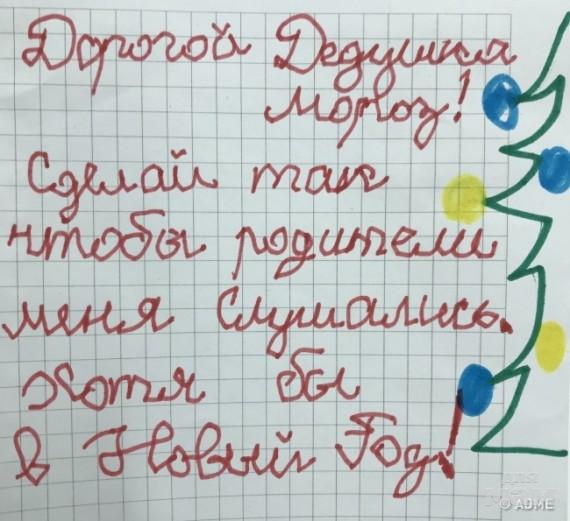 Дорогой Дедушка
Мороз!
Сделай так
чтобы родители
меня слушались.
Хотя бы
в Новый Год!
© ADME